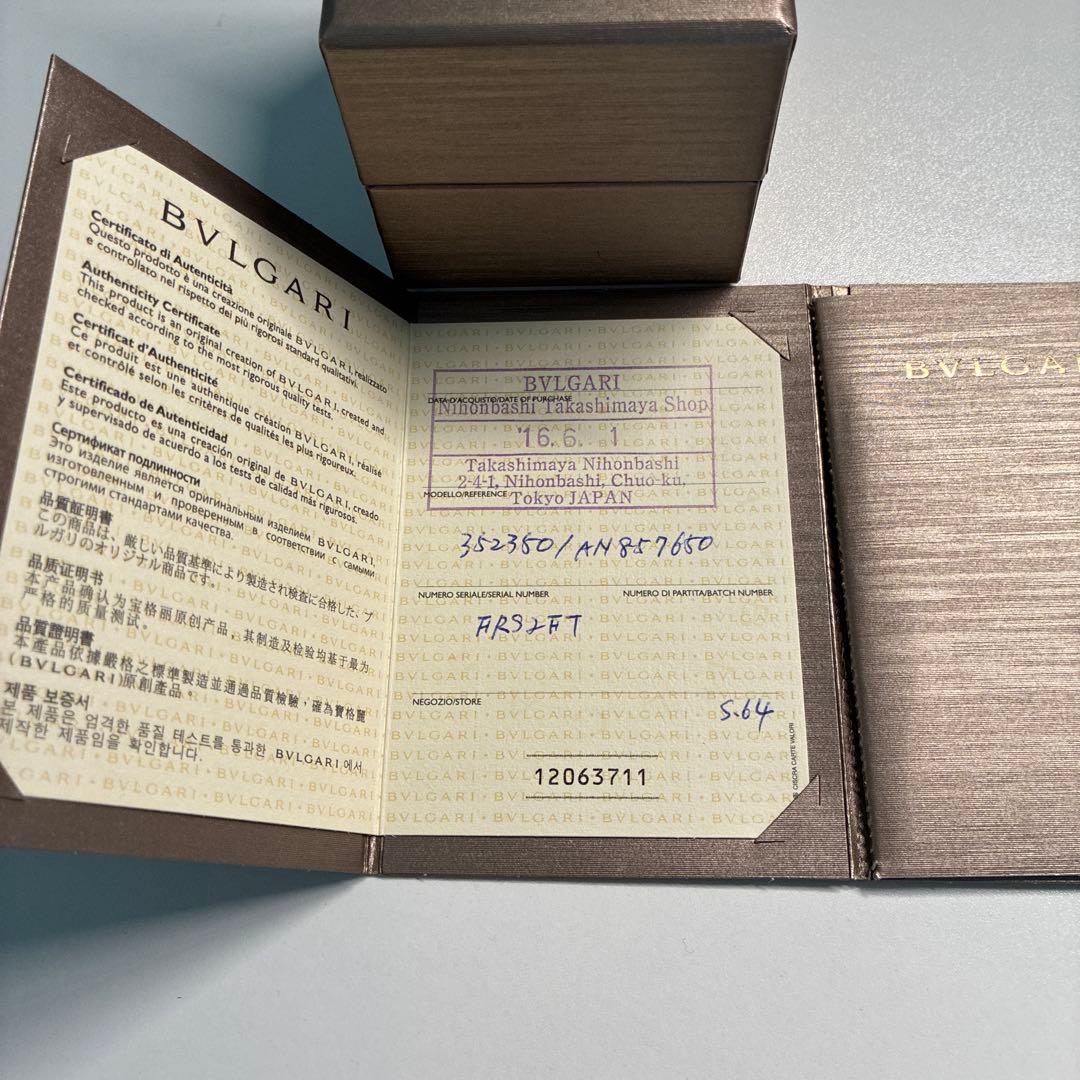 BVLGARI
Certificato di Autenticità
Questo prodotto è una creazione originale BVLGARI, realizzato
e controllato nel rispetto dei più rigorosi standard qualitativi.
Authenticity Certificate
This product is an original creation of BVLGARI, created and
checked according to the most rigorous quality tests.
Certificat d'Authenticité
Ce produit est une authentique création BVLGARI, réalisé
et contrôlé selon les critères de qualités les plus rigoureux.
Certificado de Autenticidad
Este producto es una creación original de BVLGARI, creado
y supervisado de acuerdo a los tests de calidad más rigurosos.
Сертификат подлинности
Это изделие является оригинальным изделием BVLGARI,
изготовленным и проверенным в соответствии с самыми
строгими стандартами качества.
品質証明書
この商品は、厳しい品質基準により製造され検査に合格した、ブ
ルガリのオリジナル商品です。
品质证明书
本产品确认为宝格丽原创产品，其制造及检验均基于最为
严格的质量测试。
品質證明書
本產品依據嚴格之標準製造並通過品質檢驗，確為寶格麗
(BVLGARI)原創產品。
제품 보증서
본 제품은 엄격한 품질 테스트를 통과한 BVLGARI 에서
제작한 제품임을 확인합니다.
BVLGARI
DATA D'ACQUISTO/DATE OF PURCHASE
Nihonbashi Takashimaya Shop
'16.6. 1
Takashimaya Nihonbashi
2-4-1, Nihonbashi, Chuo-ku,
MODELLO/REFERENCE
Tokyo JAPAN
352350/AN857650
NUMERO SERIALE/SERIAL NUMBER NUMERO DI PARTITA/BATCH NUMBER
FRS2FT
NEGOZIO/STORE
S.64
12063711
CISCRA CARTE VALORI
BVLGA